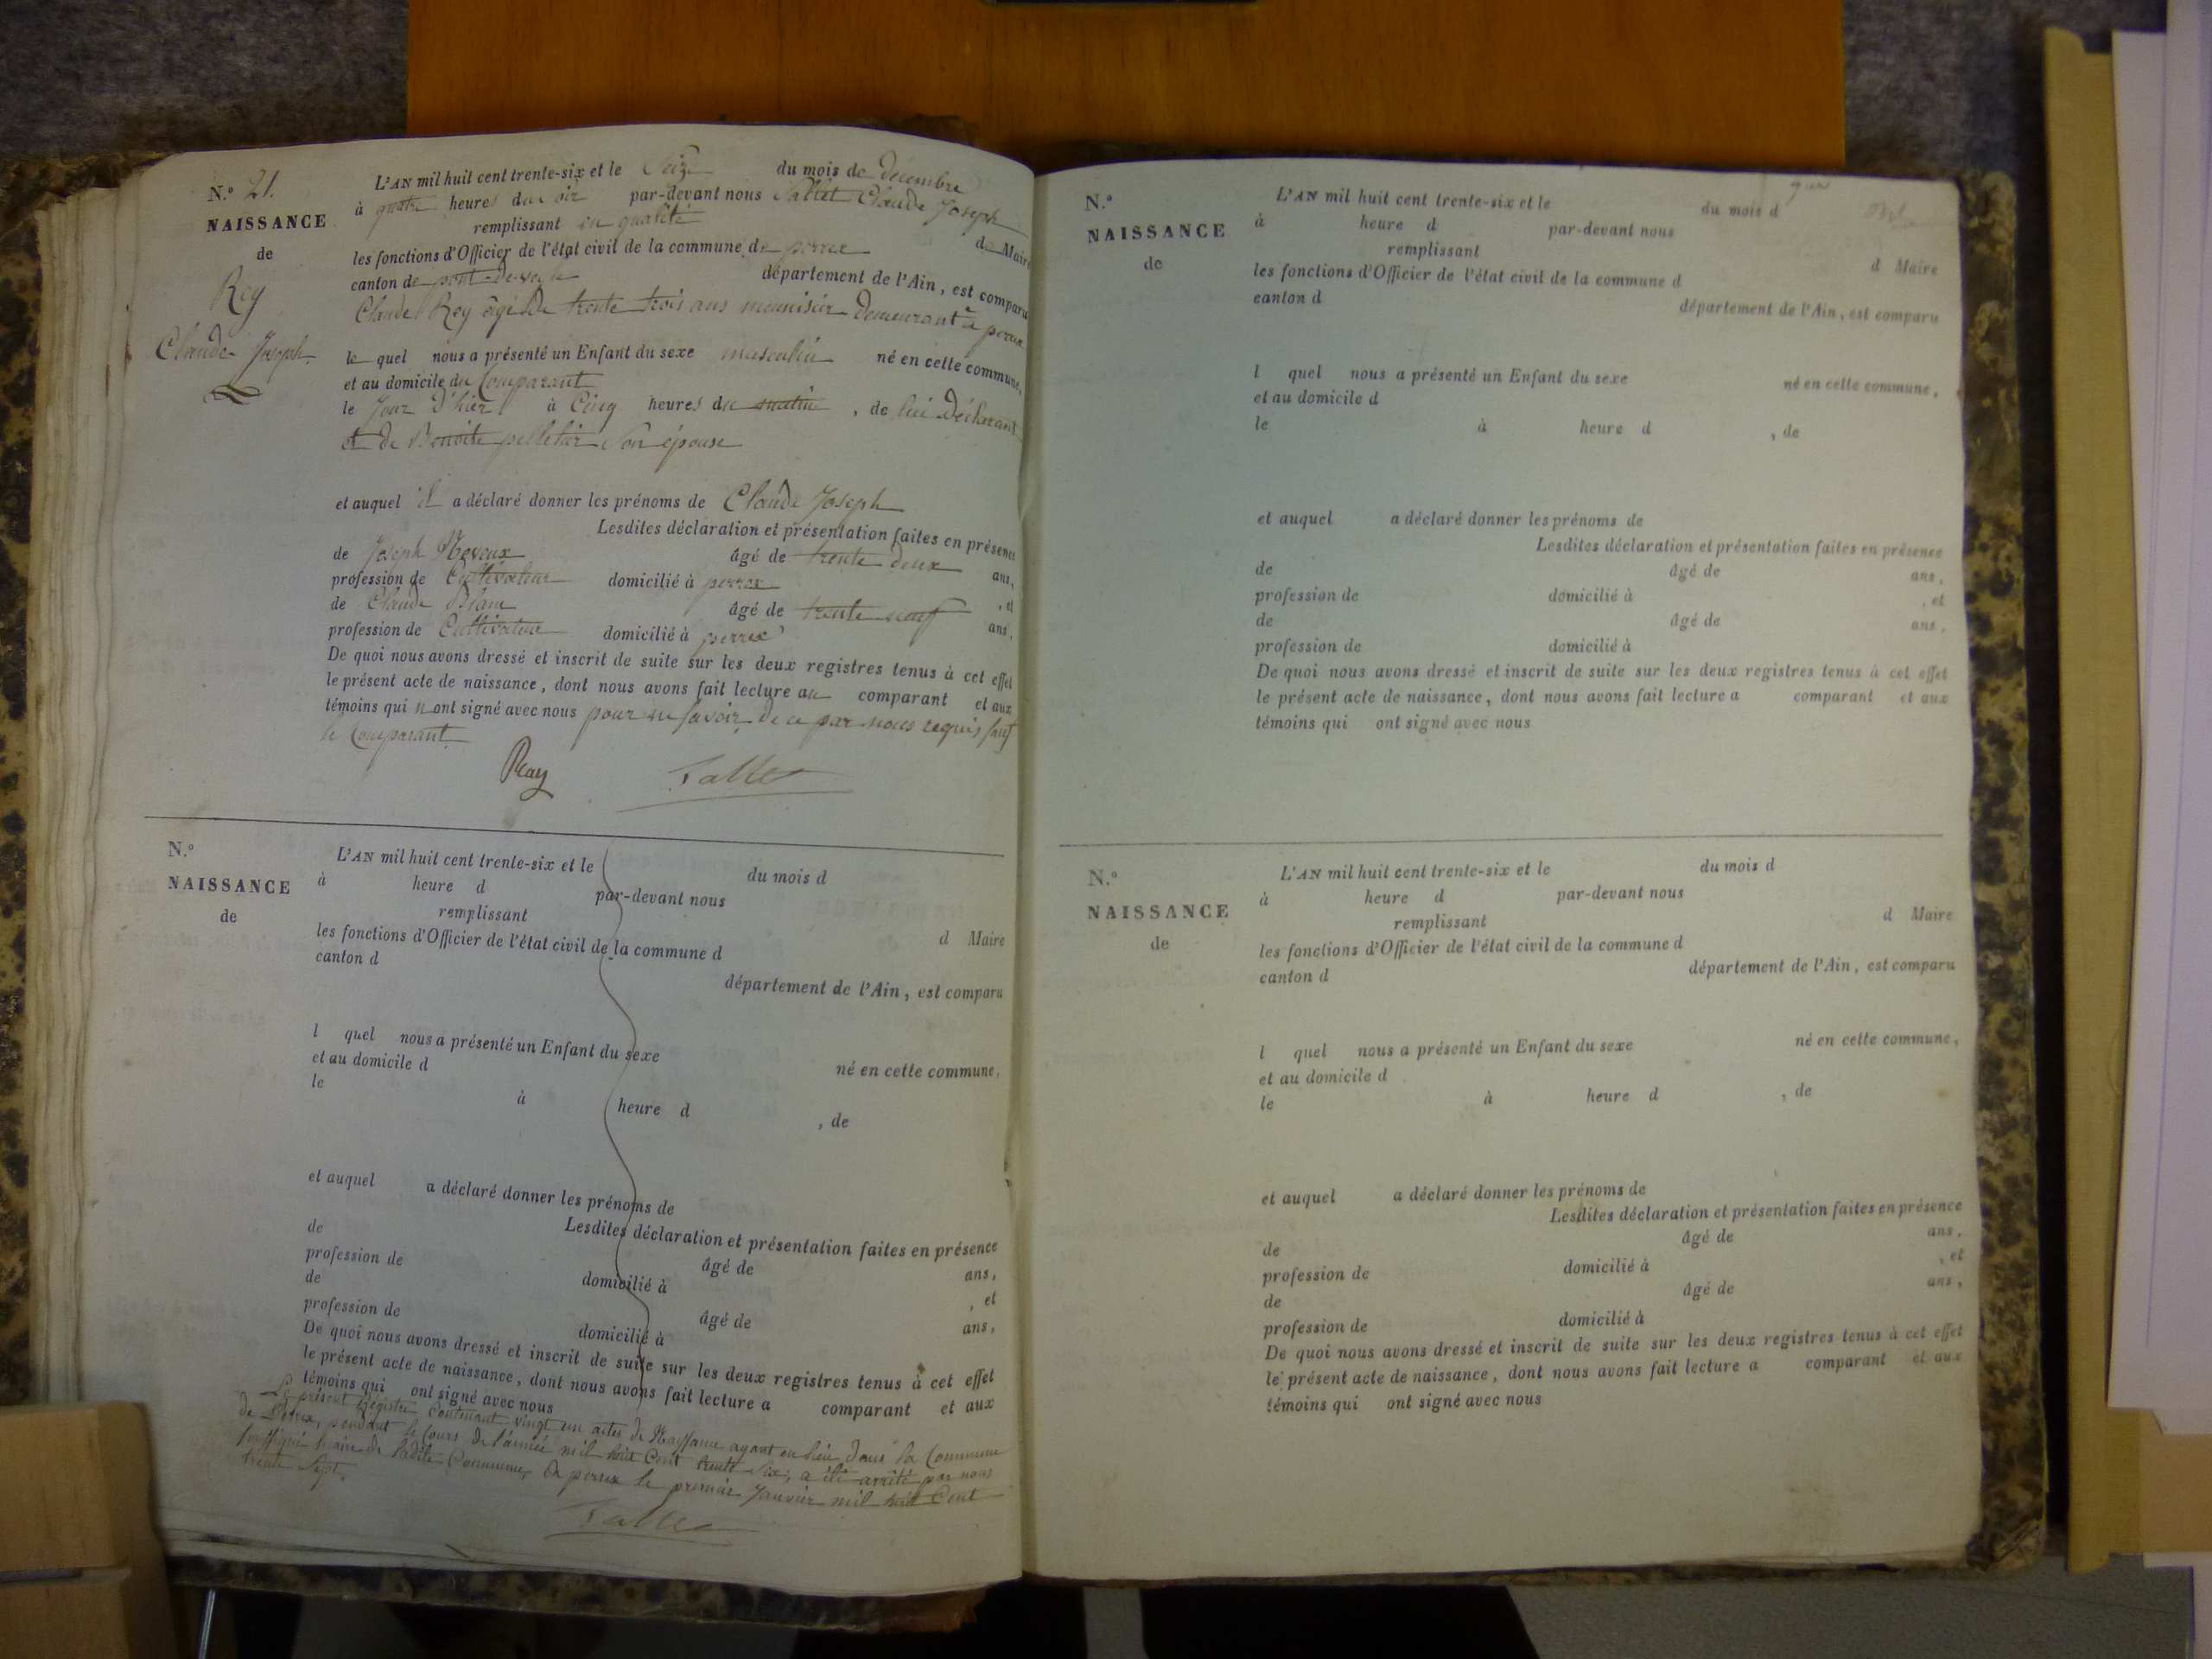 N.° 21.
NAISSANCE
de
Rey
Claude Joseph
L'AN mil huit cent trente-six et le Seize du mois de décembre
à quatre heures du soir par-devant nous Tallet Claude Joseph
remplissant en qualité de Maire
les fonctions d'Officier de l'état civil de la commune de perrex
canton de pont-de-veyle département de l'Ain, est comparu
Claude Rey âgé de trente trois ans menuisier demeurant à perrex
le quel nous a présenté un Enfant du sexe masculin né en cette commune,
et au domicile du Comparant
le Jour d'hier à Cinq heures du matin, de lui déclarant
et de Benoite pelletier Son épouse
et auquel il a déclaré donner les prénoms de Claude Joseph
Lesdites déclaration et présentation faites en présence
de Joseph âgé de trente deux ans,
profession de Cultivateur domicilié à perrex, et
de Claude Blanc âgé de trente neuf ans,
profession de Cultivateur domicilié à perrex
De quoi nous avons dressé et inscrit de suite sur les deux registres tenus à cet effet
le présent acte de naissance, dont nous avons fait lecture au comparant et aux
témoins qui n'ont signé avec nous pour ne savoir de ce par nous requis sauf
le Comparant
Ray Tallet
N.°
NAISSANCE
de
L'AN mil huit cent trente-six et le du mois d
à heure d par-devant nous
remplissant d Maire
les fonctions d'Officier de l'état civil de la commune d
canton d département de l'Ain, est comparu
l quel nous a présenté un Enfant du sexe né en cette commune,
et au domicile d
le à heure d , de
et auquel a déclaré donner les prénoms de
Lesdites déclaration et présentation faites en présence
de âgé de ans,
profession de domicilié à , et
de âgé de ans,
profession de domicilié à
De quoi nous avons dressé et inscrit de suite sur les deux registres tenus à cet effet
le présent acte de naissance, dont nous avons fait lecture a comparant et aux
témoins qui ont signé avec nous
Le présent Régistre Contenant vingt un actes de Naissance ayant eu lieu dans la Commune
de Perrex, pendant le Cours de l'année mil huit Cent trente Six, a été arrêté par nous
soussigné Maire de ladite Commune, à perrex le premier Janvier mil huit Cent
trente Sept.
Tallet
N.°
NAISSANCE
de
L'AN mil huit cent trente-six et le du mois d
à heure d par-devant nous
remplissant d Maire
les fonctions d'Officier de l'état civil de la commune d
canton d département de l'Ain, est comparu
l quel nous a présenté un Enfant du sexe né en cette commune,
et au domicile d
le à heure d , de
et auquel a déclaré donner les prénoms de
Lesdites déclaration et présentation faites en présence
de âgé de ans,
profession de domicilié à , et
de âgé de ans,
profession de domicilié à
De quoi nous avons dressé et inscrit de suite sur les deux registres tenus à cet effet
le présent acte de naissance, dont nous avons fait lecture a comparant et aux
témoins qui ont signé avec nous
N.°
NAISSANCE
de
L'AN mil huit cent trente-six et le du mois d
à heure d par-devant nous
remplissant d Maire
les fonctions d'Officier de l'état civil de la commune d
canton d département de l'Ain, est comparu
l quel nous a présenté un Enfant du sexe né en cette commune,
et au domicile d
le à heure d , de
et auquel a déclaré donner les prénoms de
Lesdites déclaration et présentation faites en présence
de âgé de ans,
profession de domicilié à , et
de âgé de ans,
profession de domicilié à
De quoi nous avons dressé et inscrit de suite sur les deux registres tenus à cet effet
le présent acte de naissance, dont nous avons fait lecture a comparant et aux
témoins qui ont signé avec nous